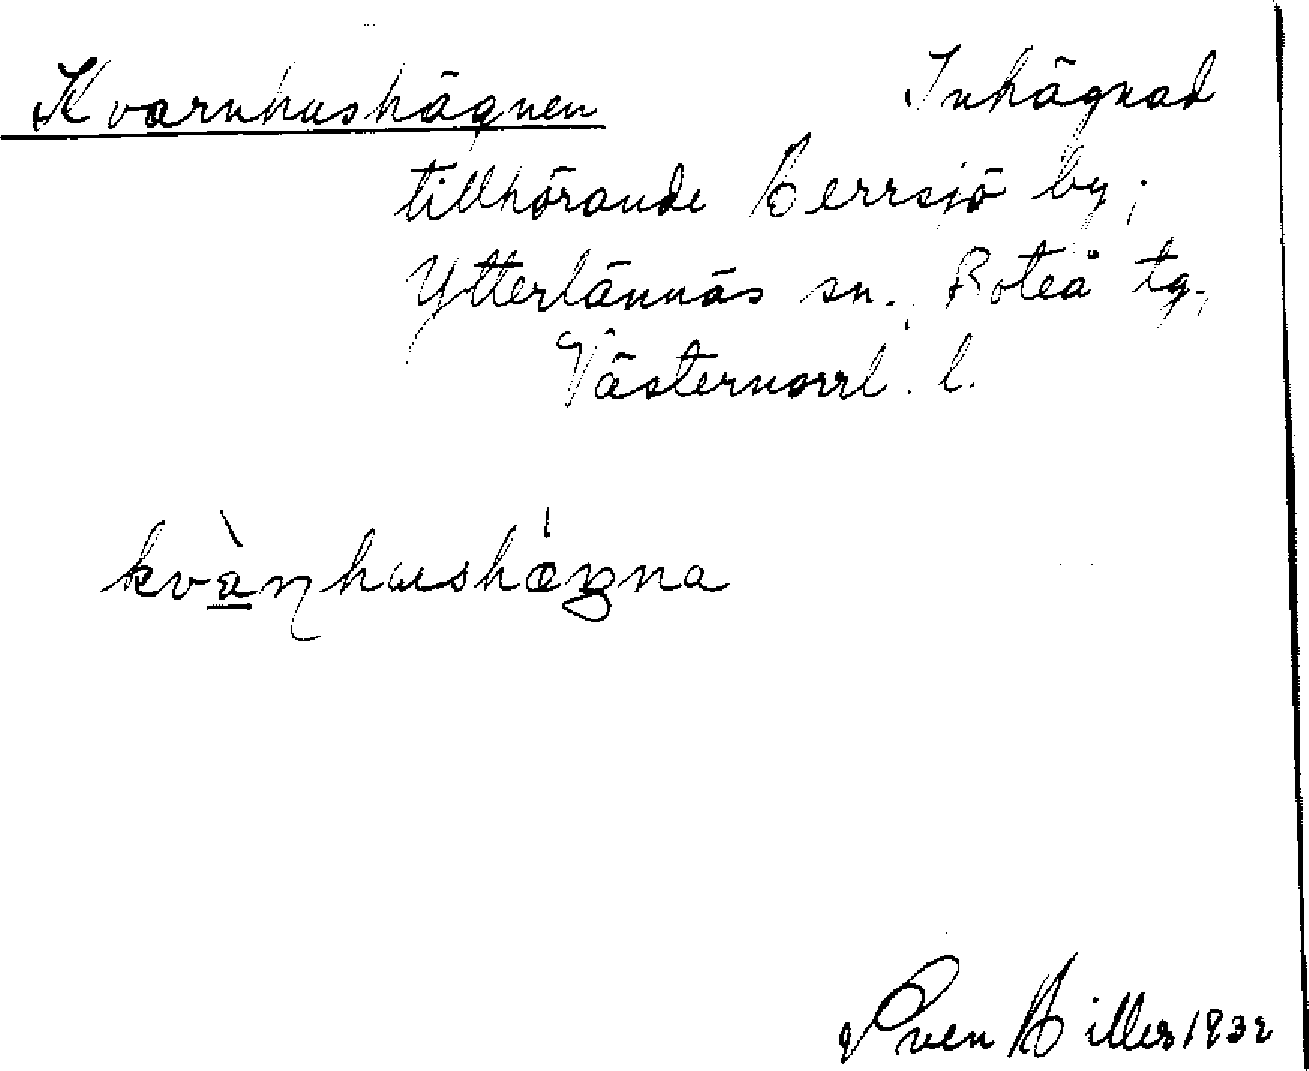 Kvarnhushägnen Inhägnad
tillhörande Herrsjö by;
Ytterlännäs sn., Boteå tg.,
Västernorrl. l.
kvànhushǽgna
Sven Hiller 1932